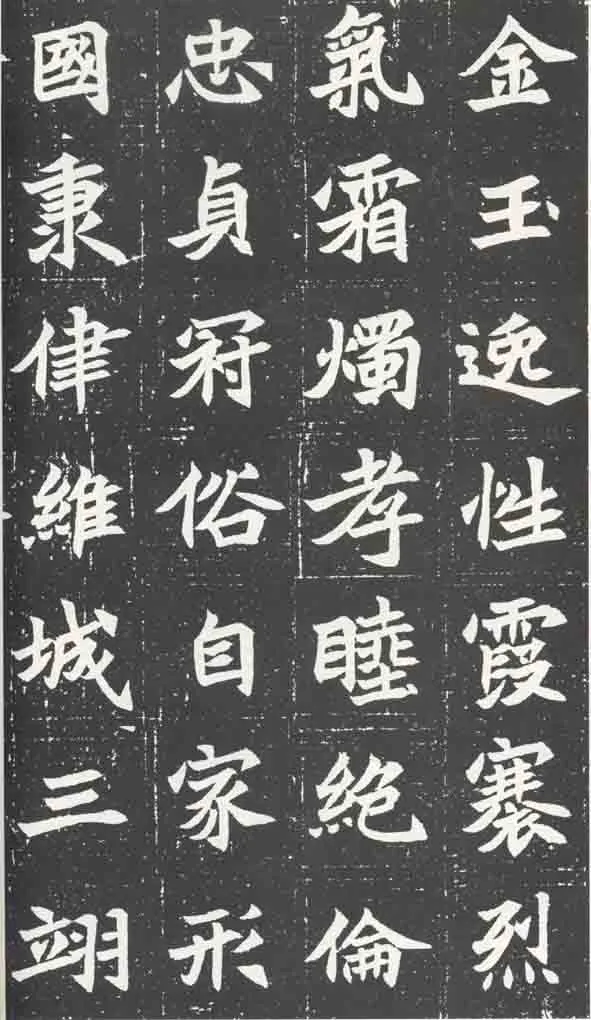 金玉逸性霞褰烈
氣霜燭孝睦絶倫
忠貞冠俗自家形
國秉律維城三翊